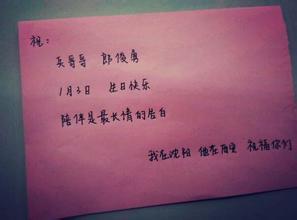 祝：
哥哥 郎俊勇
1月3日 生日快乐
陪伴是最长情的告白
我在沈阳 他在西安 祝福你们